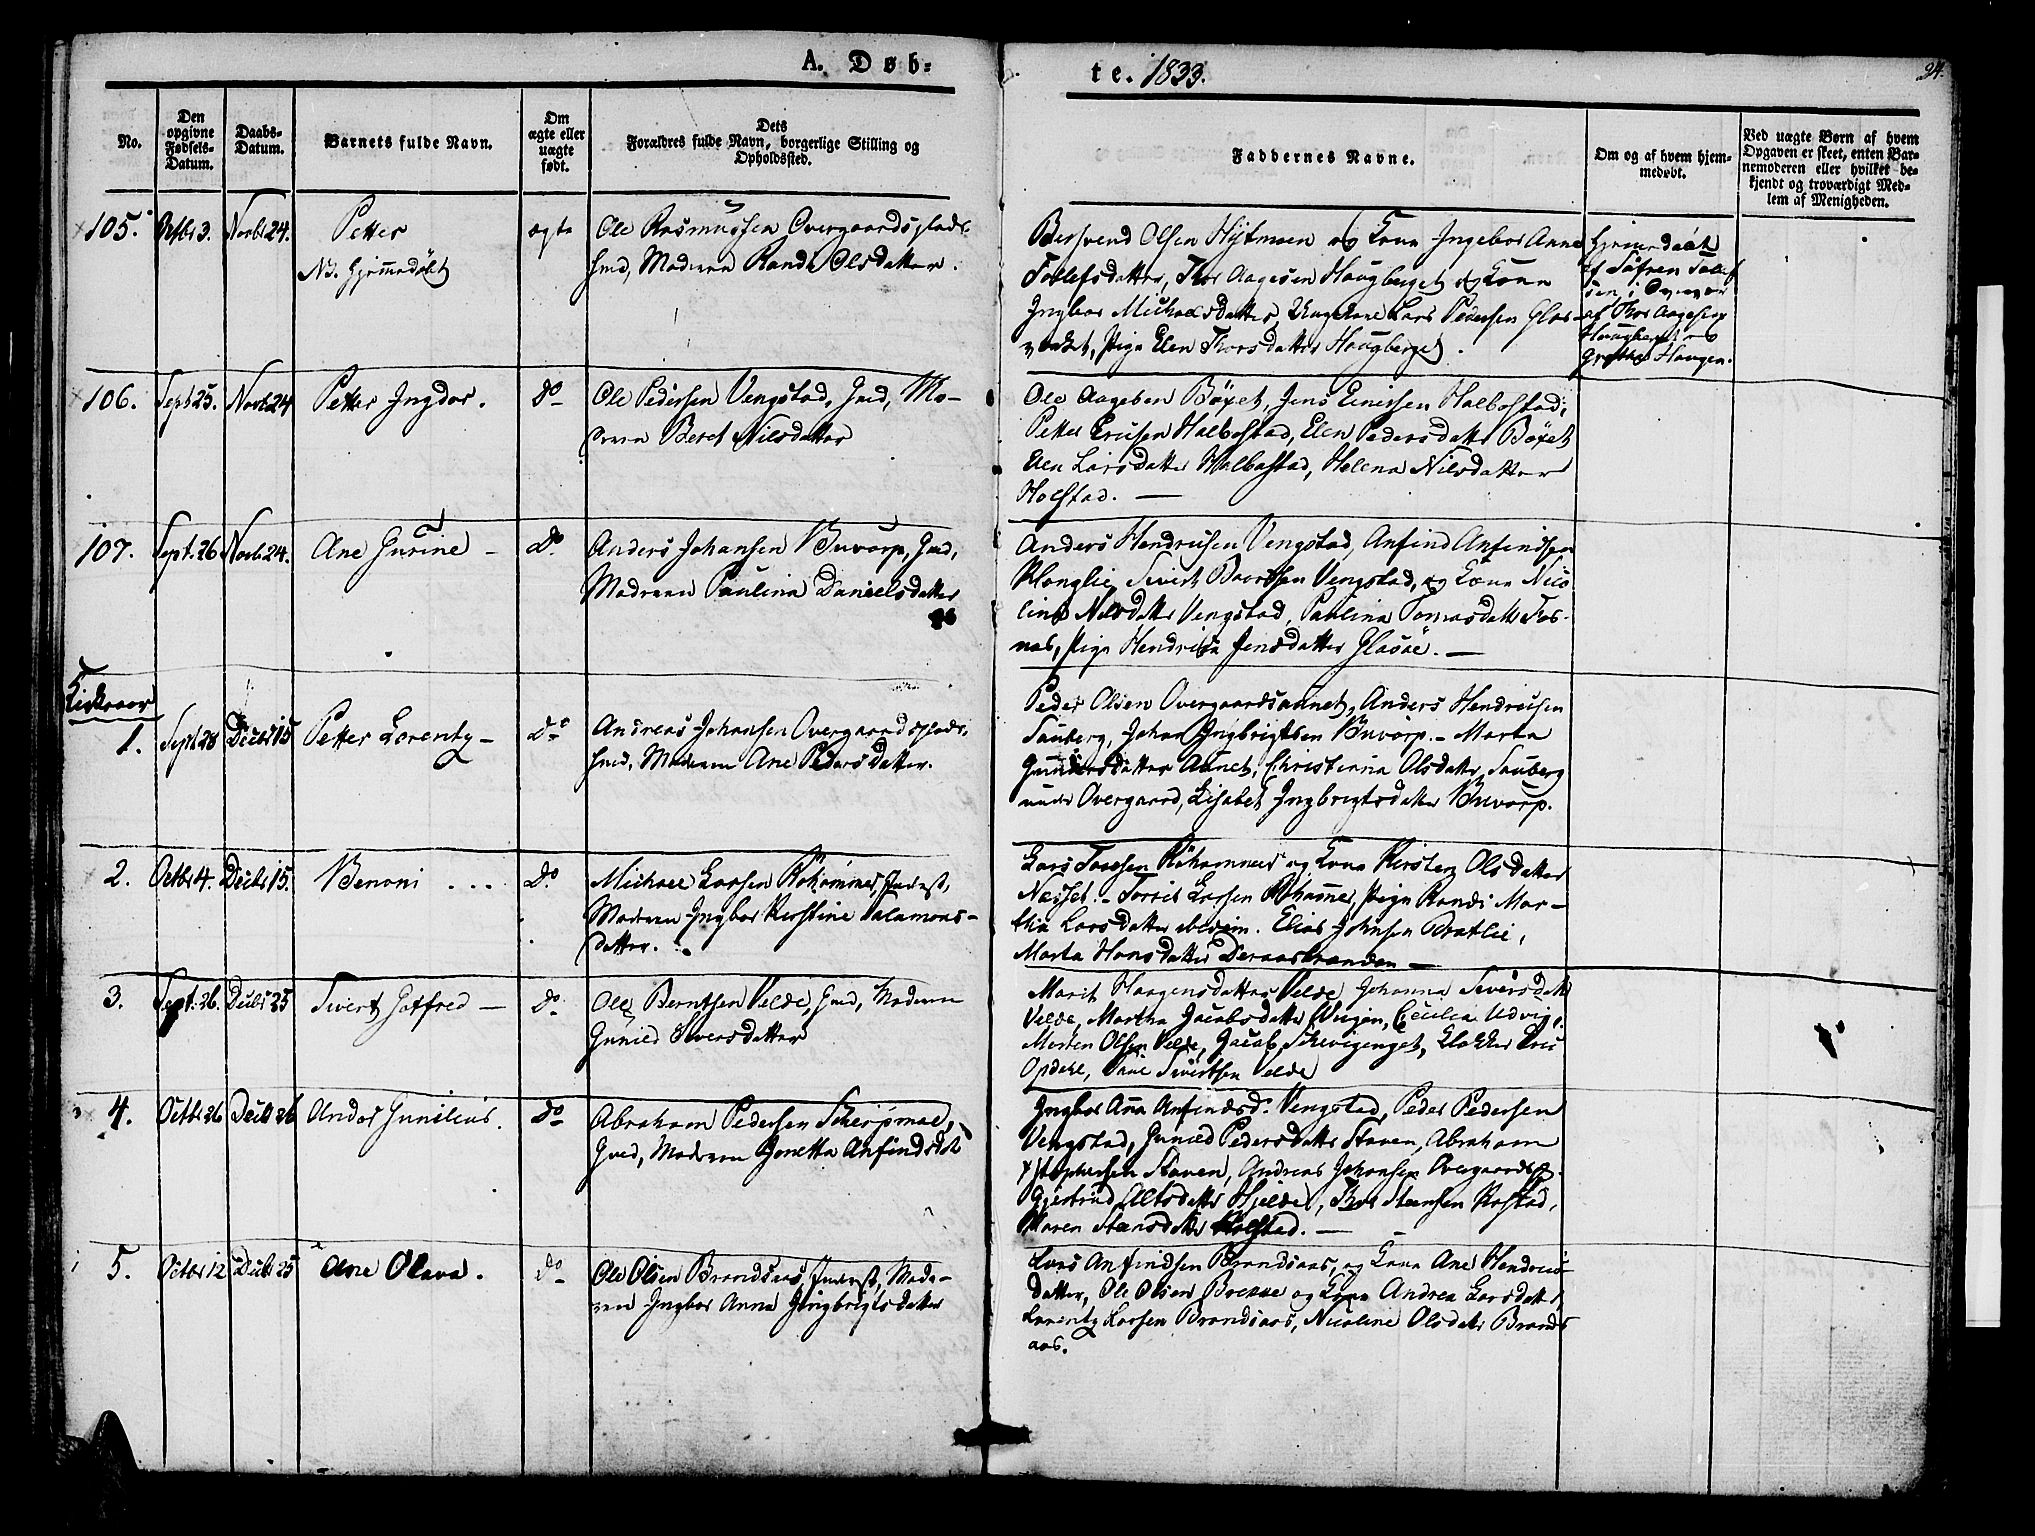 A. Døb-
te. 1833.
24.
No.
Den opgivne Fødsels-Datum.
Daabs-Datum.
Barnets fulde Navn.
Om ægte eller uægte født.
Dets Forældres fulde Navn, borgerlige Stilling og Opholdssted.
Faddernes Navne.
Om og af hvem hjem-medøbt.
Ved uægte Børn af hvem Opgaven er skeet, enten Bar-nemoderen eller hvilket be-kjendt og troværdigt Med-lem af Menigheden.
105. Octbr 3. Novbr 24. Petter ægte Ole Rasmussen Overgaardsplads,
NB. Hjemmedøbt
Gmd, Moderen Randi Olsdatter.
Bersvend Olsen Hÿtmoen og Kone Ingebor Anne
Tollefsdatter, Thor Aagesen Hougberget og Kone
Ingbor Michaelsdatter, Ungkarl Lars Pedersen
Pige Elen Thorsdatter Hougberget.
Hjemedøbt
af
af Thor Aagesen
Hougberget og
Grethe Haugen.
106. Sept 25. Novbr 24 Petter Ingdor. do Ole Pedersen Vengstad, Gmd, Mo-
deren Beret Nilsdatter
Ole Aagesen Böxet, Jens Halbostad,
Petter Halbostad, Elen Pedersdatter Böxet
Elen Larsdatter Halbostad, Helena Nilsdatter
Holstad.
107. Sept. 26 Novb 24. Ane Gurine do Anders Johansen Buvorp, Gmd,
Moderen Paulina Danielsdatter
Anders Hendricsen Vengstad, Anfind Anfindsen
Sivert Baardsen Vengstad, og Kone Nico-
line Nilsdatter Vengstad, Paulina Tomasdatter Fos-
nes, Pige Hendrica Jensdatter
Kirkeaar
1. Sept 28 Decbr 15 Petter Lorentz do Andreas Johansen Overgaardsplads,
Gmd, Moderen Ane Pedersdatter.
Peder Olsen Overgaardsaunet, Anders Hendricsen
Sauberg, Johan Ingbrigtsen Buvorp. Marta
Gundersdatter Aunet, Christianna Olsdatter Sauberg
under Overgaard, Lisabet Ingbrigtsdatter Buvorp.
2. Octbr 4. Decbr 15. Benoni do Michael Larsen Röhammer, Inderst,
Moderen Ingbor Kirstine Salamons-
datter.
Lars Röhammer og Kone Kirsten Olsdatter
Næsset. Larsen Röhammer, Pige Randi Mar-
thia Larsdatter ibidem. Elias Johnsen Bratlie,
Marta Hansdatter
3. Sept. 26. Decbr 25 Sivert Gotfred do Ole Berntsen Velde, Gmd, Moderen
Gunild Siversdatter
Marit Haagensdatter Velde, Johanna Siversdatter
Velde, Martha Jacobsdatter Cecilia Udvig,
Morten Olsen Velde, Jacob Klokker
Opdahl, Sivertsen Velde
4. Octbr 26 Decbr 26 Andor Gunilius. do Abraham Pedersen Skerpmoe,
Gmd, Moderen Jonetta Anfindsdt
Ingbor Ana Anfindsd. Vengstad, Peder Pedersen
Vengstad, Gunild Pedersdatter Staven, Abraham
Staven, Andreas Johansen Overgaardspl.
Gjertrud Olsdatter Hjelde, Thor Steensen Rostad,
Maren Steensdatter
5. Octbr 12 Decbr 25 Ane Olava. do Ole Olsen Brandsaas, Inderst, Mode-
ren Ingbor Anna Ingbrigtsdatter
Lars Anfindsen Brandsaas, og Kone Ane Hendrics-
datter, Ole Olsen og Kone Andrea Larsdatter,
Lorentz Larsen Brandsaas, Nicoline Olsdatter Brands
aas.